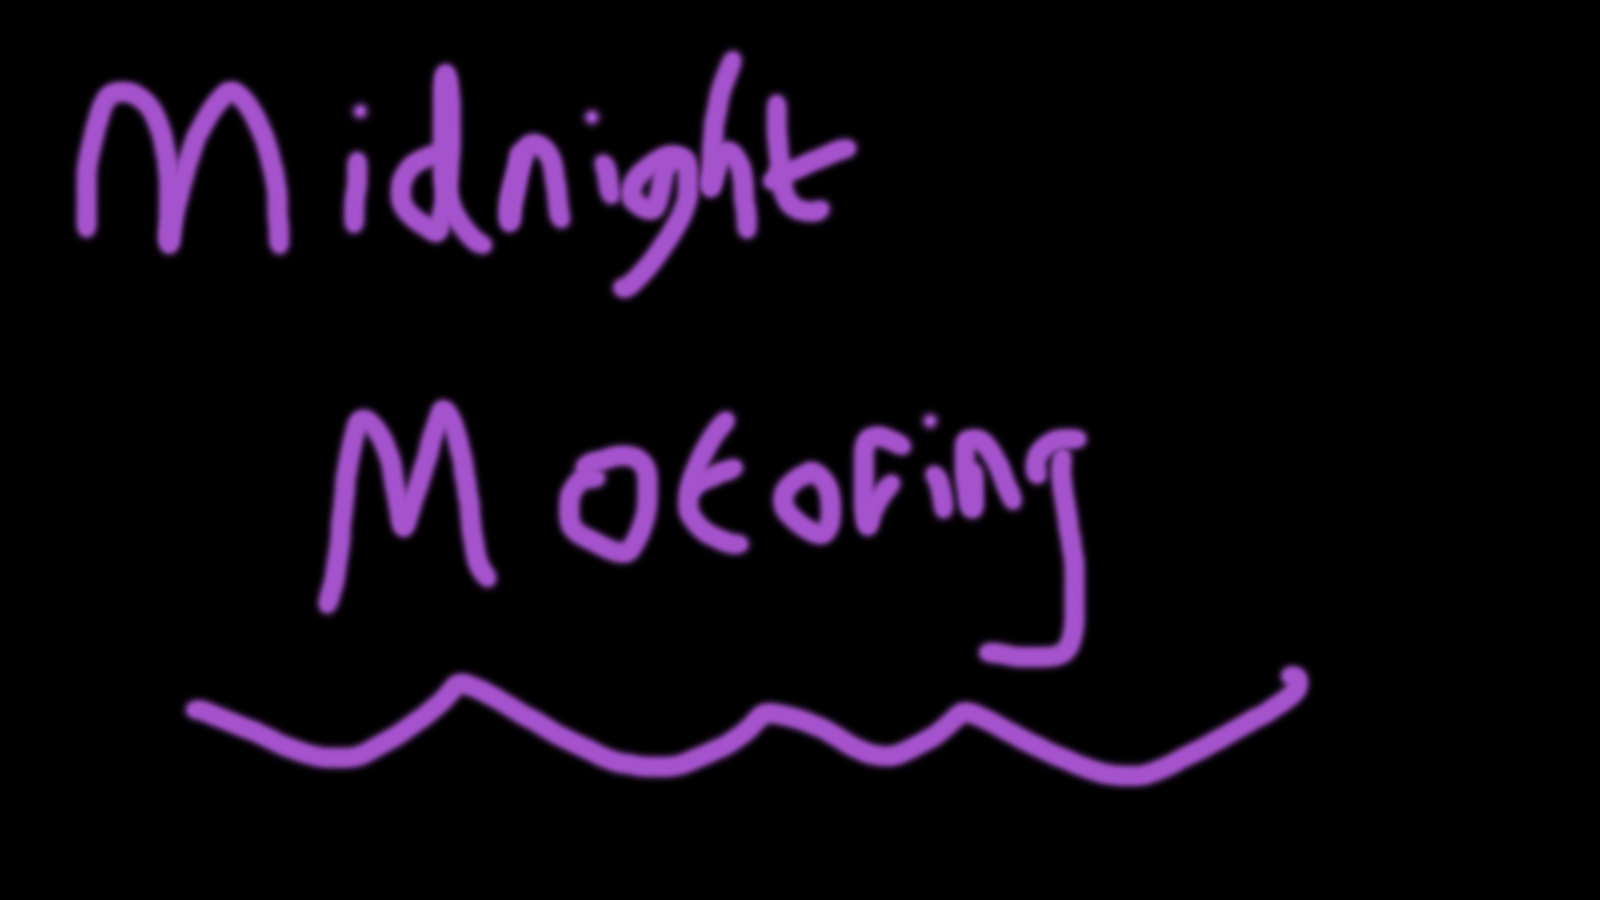 Midnight
Motoring